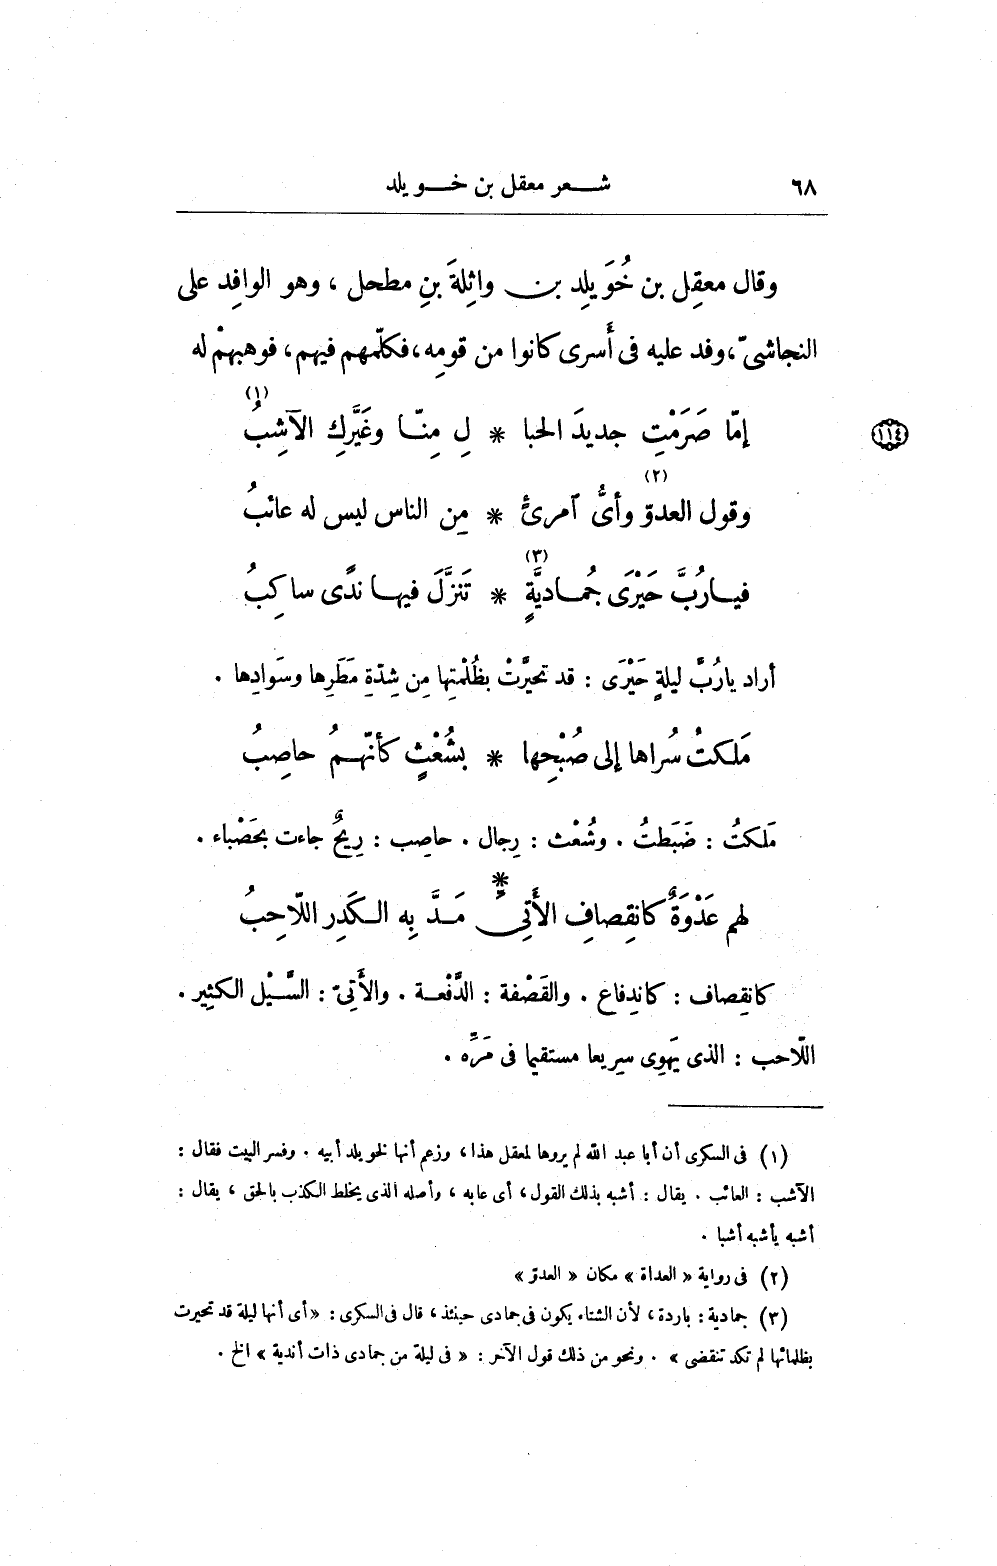 ٦٨ شعر معقل بن خويلد
وقال معقِل بن خُوَيلِد بن واثِلةَ بنِ مطحل ، وهو الوافِد على
النجاشىّ، وفد عليه فى أَسرى كانوا من قومِه، فكلّمهم فيهم، فوهبهمْ له
إمّا صَرَمْتِ جديدَ الحبا * لِ مِنّا وغَيَّرَكِ الآشِبُ (١)
١١٤
وقول العدوّ (٢) وأىُّ ٱمرئٍ * مِن الناس ليس له عائبُ
فيارُبَّ حَيْرَى جُماديَّةٍ (٣) * تَنزَّلَ فيها ندًى ساكِبُ
أراد يارُبَّ ليلةٍ حَيْرَى : قد تحيَّرتْ بظُلْمتِها مِن شِدّةِ مَطَرِها وسَوادِها .
مَلكتُ سُراها إلى صُبْحِها * بشُعْثٍ كأنّهمُ حاصِبُ
مَلكتُ : ضَبَطتُ . وشُعْث : رِجال . حاصِب : رِيحٌ جاءت بحَصْباء .
لهم عَدْوَةٌ كانقِصافِ الأَتِىِّ * مَدَّ بِه الكَدِر اللّاحِبُ
كانقِصاف : كاندِفاع . والقَصْفة : الدَّفْعة . والأَتِىّ : السَّيْل الكثِير .
اللّاحب : الذى يَهوِى سرِيعا مستقيما فى مَرِّه .
(١) فى السكرى أن أبا عبد الله لم يروها لمعقل هذا، وزعم أنها لخويلد أبيه . وفسر البيت فقال :
الآشب : العائب . يقال : أشبه بذلك القول، أى عابه ، وأصله الذى يخلط الكذب بالحق ، يقال :
أشبه يأشبه أشبا .
(٢) فى رواية « العداة » مكان « العدوّ »
(٣) جمادية : باردة، لأن الشتاء يكون فى جمادى حينئذ ، قال فى السكرى : « أى أنها ليلة قد تحيرت
بظلمائها لم تكد تنقضى » . ونحو من ذلك قول الآخر : « فى ليلة من جمادى ذات أندية » الخ .